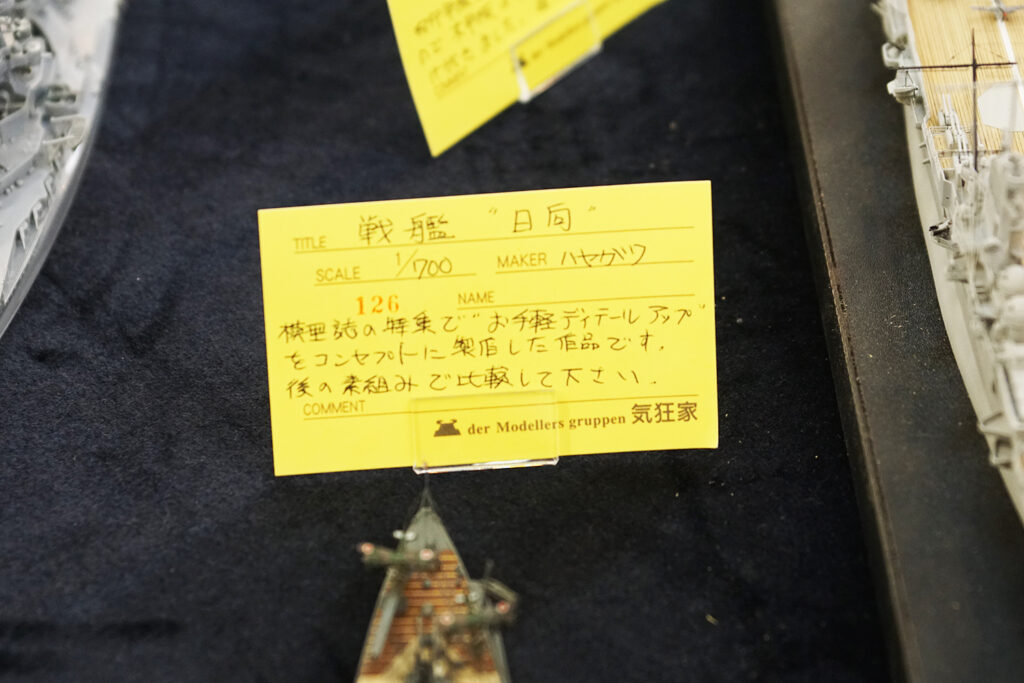 der Modellers
TITLE 戦艦 "日向"
SCALE 1/700 MAKER ハセガワ
126 NAME
模型誌の特集で"お手軽ディテールアップ"
をコンセプトに製作した作品です。
後の素組みで比較して下さい.
COMMENT
der Modellers gruppen 気狂家